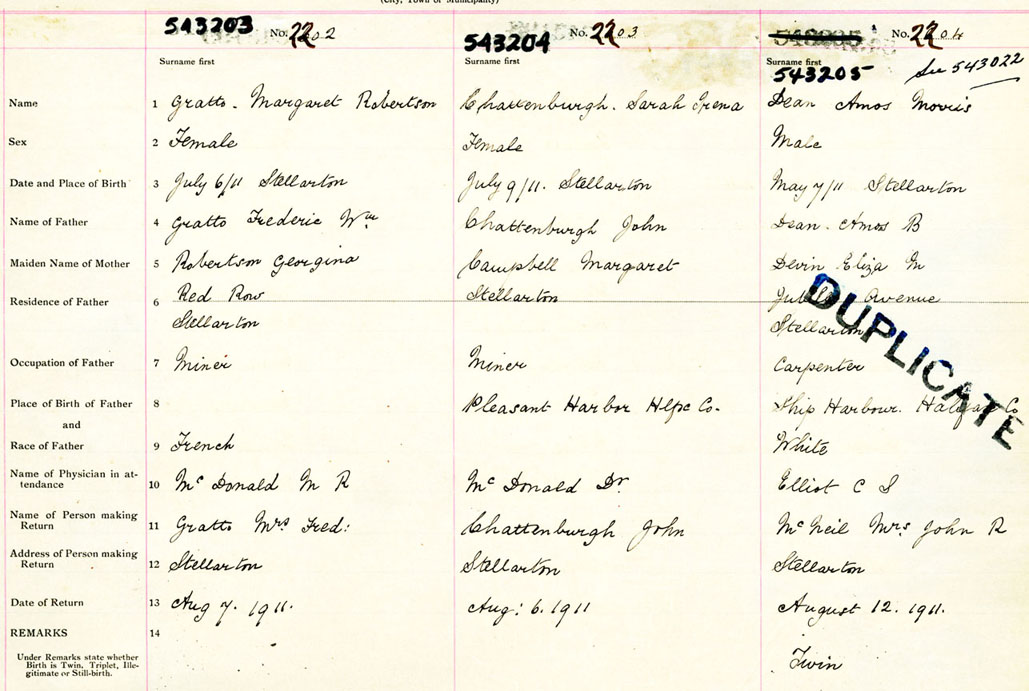 (City, Town or Municipality)
543203 No. 2202
543204 No. 2203
543205 No. 2204
Surname first
Surname first
Surname first
543205 See 543022
Name 1 Gratto. Margaret Robertson Chattenburgh. Sarah Irena Dean Amos Morris
Sex 2 Female Female Male
Date and Place of Birth 3 July 6/11 Stellarton July 9/11. Stellarton May 7/11 Stellarton
Name of Father 4 Gratto Frederic Wm Chattenburgh John Dean. Amos B
Maiden Name of Mother 5 Robertson Georgina Campbell Margaret Devin Eliza M
Residence of Father 6 Red Row Stellarton Jubilee Avenue
Stellarton Stellarton
DUPLICATE
Occupation of Father 7 Miner Miner Carpenter
Place of Birth of Father 8 Pleasant Harbor Hlfx Co. Ship Harbour. Halifax Co
and
Race of Father 9 French White
Name of Physician in at-
tendance 10 Mc Donald M R Mc Donald Dr. Elliot C S
Name of Person making
Return 11 Gratto Mrs Fred: Chattenburgh John Mc Neil Mrs. John R
Address of Person making
Return 12 Stellarton Stellarton Stellarton
Date of Return 13 Aug 7. 1911. Aug: 6. 1911 August 12. 1911.
REMARKS 14
Under Remarks state whether
Birth is Twin, Triplet, Ille-
gitimate or Still-birth.
Twin